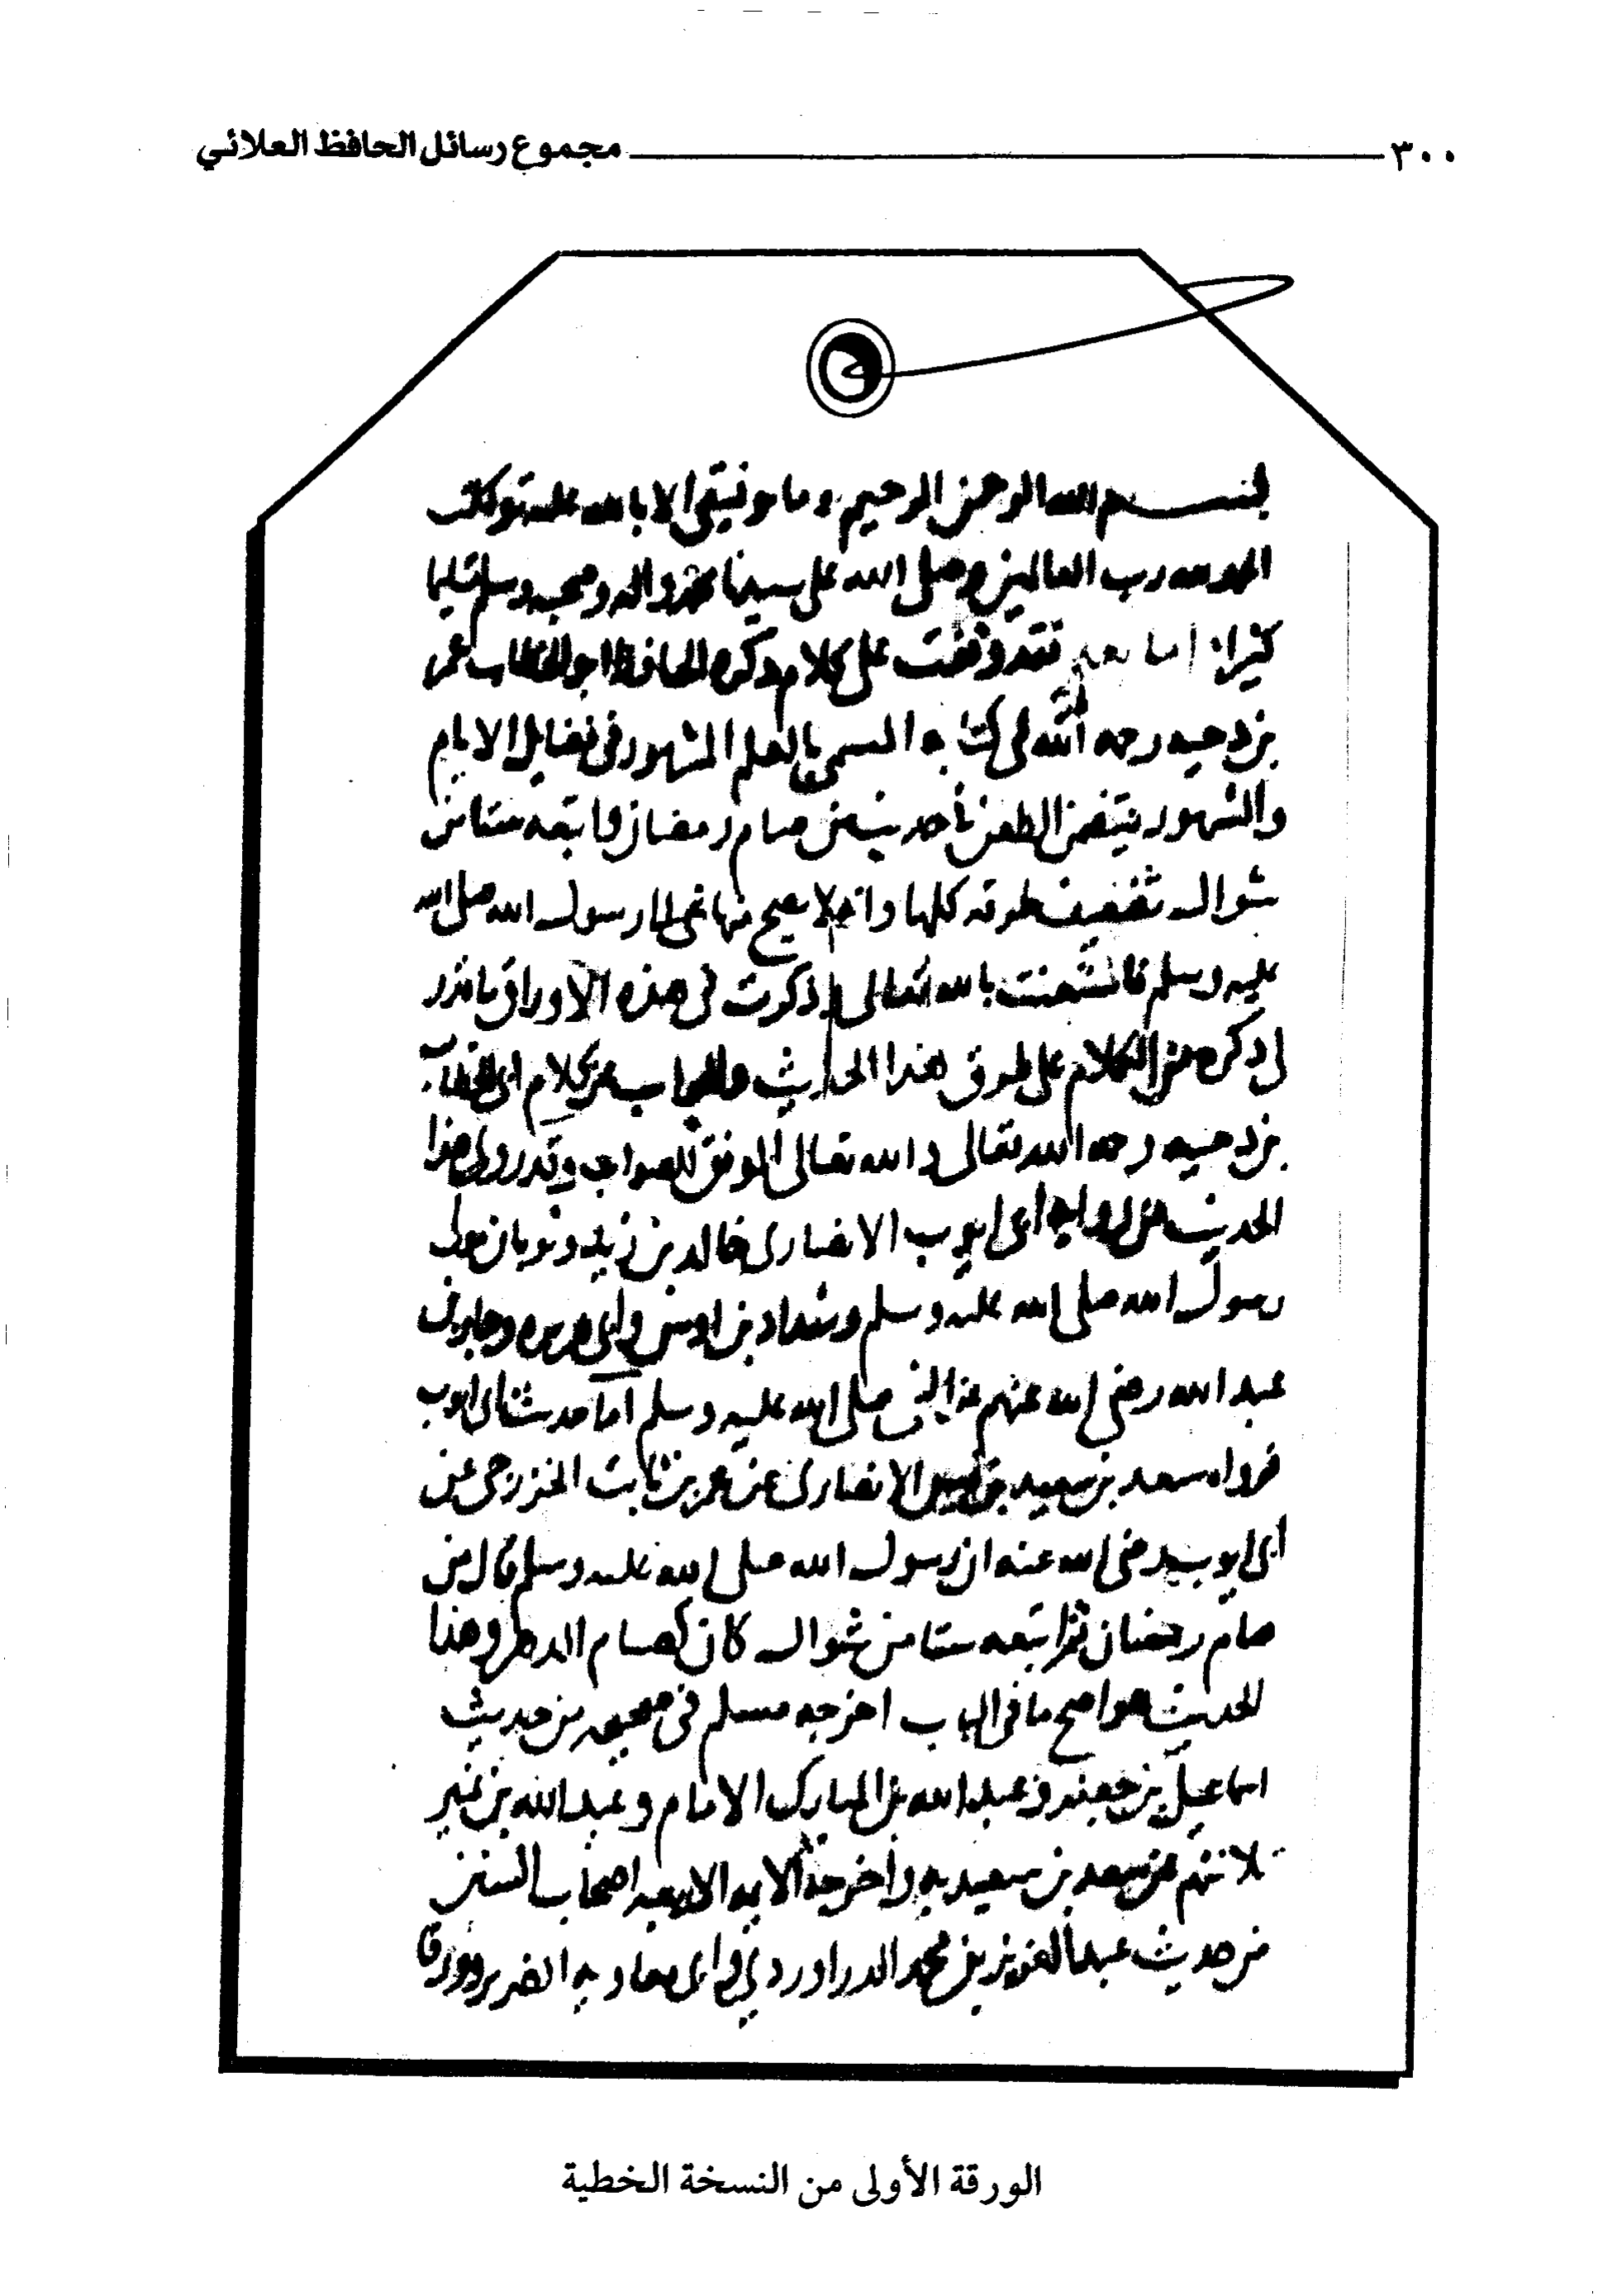 ٣٠٠ مجموع رسائل الحافظ العلائي
بسم الله الرحمن الرحيم وما توفيقي الا بالله عليه توكلت
الحمد لله رب العالمين وصلى الله على سيدنا محمد واله وصحبه وسلم تسليما
كثيرا اما بعد فقد وقفت على كلام ذكره الحافظ ابو الخطاب عمر
بن دحيه رحمه الله في كتابه المسمى بالعلم المشهور في فضايل الايام
والشهور يتضمن الطعن في حديث من صام رمضان واتبعه ستا من
شوال تضعيف طرقه كلها وانه لا يصح منها شي الى رسول الله صلى الله
عليه وسلم فاستعنت بالله تعالى وذكرت في هذه الاوراق ما قدر
لي ذكره من الكلام على طرق هذا الحديث والجواب عن كلام ابي الخطاب
بن دحيه رحمه الله تعالى والله تعالى الموفق للصواب وقد روي هذا
الحديث من رواية ابي ايوب الانصاري خالد بن زيد وثوبان مولى
رسول الله صلى الله عليه وسلم وشداد بن اوس وابي هريره وجابر بن
عبد الله رضي الله عنهم عن النبي صلى الله عليه وسلم اما حديث ابي ايوب
فرواه سعد بن سعيد بن قيس الانصاري عن عمر بن ثابت الخزرجي عن
ابي ايوب رضي الله عنه ان رسول الله صلى الله عليه وسلم قال من
صام رمضان ثم اتبعه ستا من شوال كان كصيام الدهر وهذا
الحديث هو اصح ما في الباب اخرجه مسلم في صحيحه من حديث
اسماعيل بن جعفر وعبد الله بن المبارك الامام وعبد الله بن نمير
ثلاثتهم عن سعد بن سعيد به واخرجه الايمه الاربعه اصحاب السنن
من حديث عبد العزيز بن محمد الدراوردي وابي معاويه الضرير وورقا
الورقة الأولى من النسخة الخطية